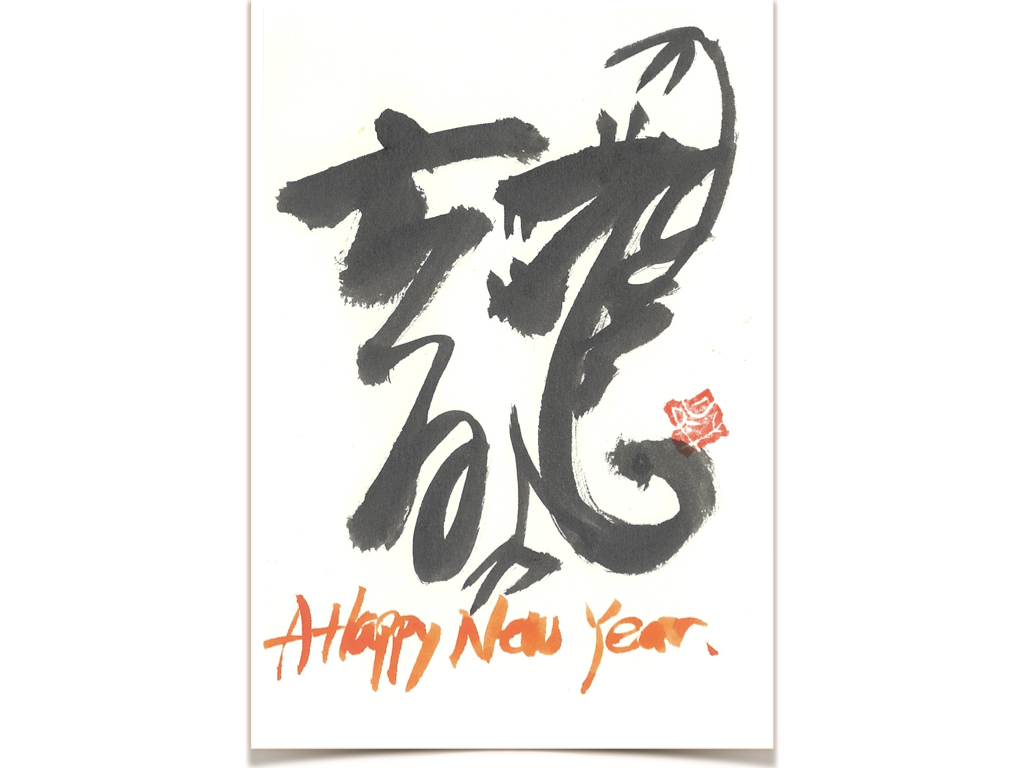 龍
A Happy New Year.